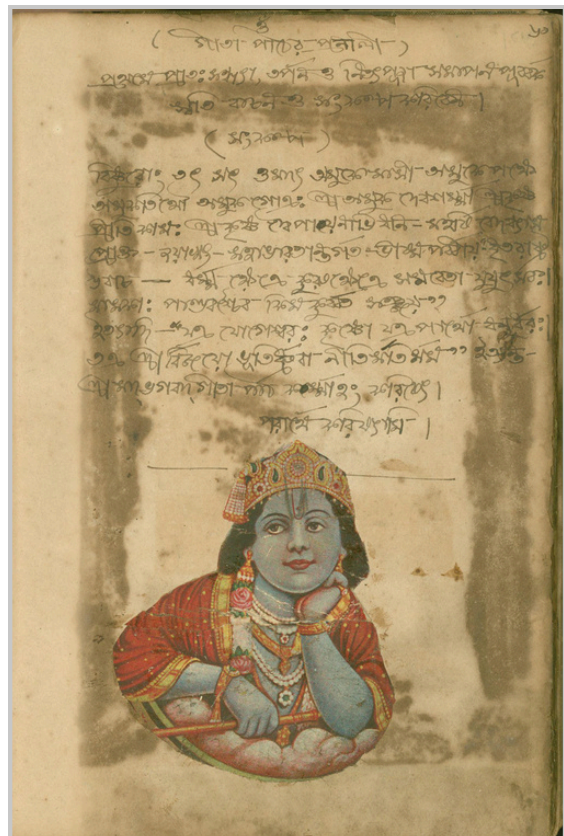 ওঁ ৬০
( গীতা পাঠের প্রণালী )
প্রথমে প্রাতঃসন্ধ্যা, তর্পন ও নিত্যপূজা সমাপন পূর্ব্বক
স্বস্তি বাচন ও সংকল্প করিবে।
( সংকল্প )
বিষ্ণুরোঁ তৎ সৎ অমুকে মাসী অমুকে পক্ষে
অমুকতিথৌ অমুক গোত্রঃ শ্রী অমুক দেবশর্ম্মা শ্রীকৃষ্ণ
প্রীতিকামঃ শ্রী কৃষ্ণ দ্বৈপায়নাভিধান - মহর্ষি বেদব্যাস
প্রোক্ত - জয়াখ্য - মহাভারতান্তর্গত - ভীষ্ম পর্ব্বীয় - ধৃতরাষ্ট্র
উবাচ — ধর্ম্ম ক্ষেত্রে কুরুক্ষেত্রে সমবেতা যুযুৎসবঃ।
মামকাঃ পাণ্ডবাশ্চৈব কিম কুর্ব্বত সঞ্জয়"
ইত্যাদি - "যত্র যোগেশ্বরঃ কৃষ্ণো যত্র পার্থো ধনুর্ধরঃ
তত্র শ্রী র্বিজয়ো ভূতির্ধ্রুবা নীতির্মতির্মম" ইত্যন্ত -
শ্রীমদ্ভগবদ্গীতা পাঠ কর্ম্মাহং করিষ্যে।
পরার্থে করিষ্যামি।